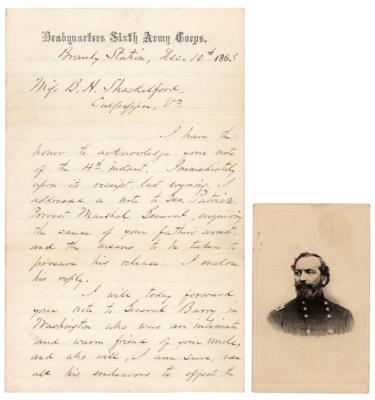 Headquarters Sixth Army Corps,
Brandy Station, Dec. 10th 1863
Miss B. H. Shackelford,
Culpepper, Va
I have the
honor to acknowledge your note
of the 4th instant. Immediately
upon its receipt, last evening, I
addressed a note to Gen. Patrick,
Provost Marshal General, inquiring
the cause of your father's arrest,
and the means to be taken to
procure his release. I enclose
his reply.
I will today forward
your note to General Barry in
Washington who was an intimate
and warm friend of your Uncle,
and who will, I am sure, use
all his endeavors to effect the